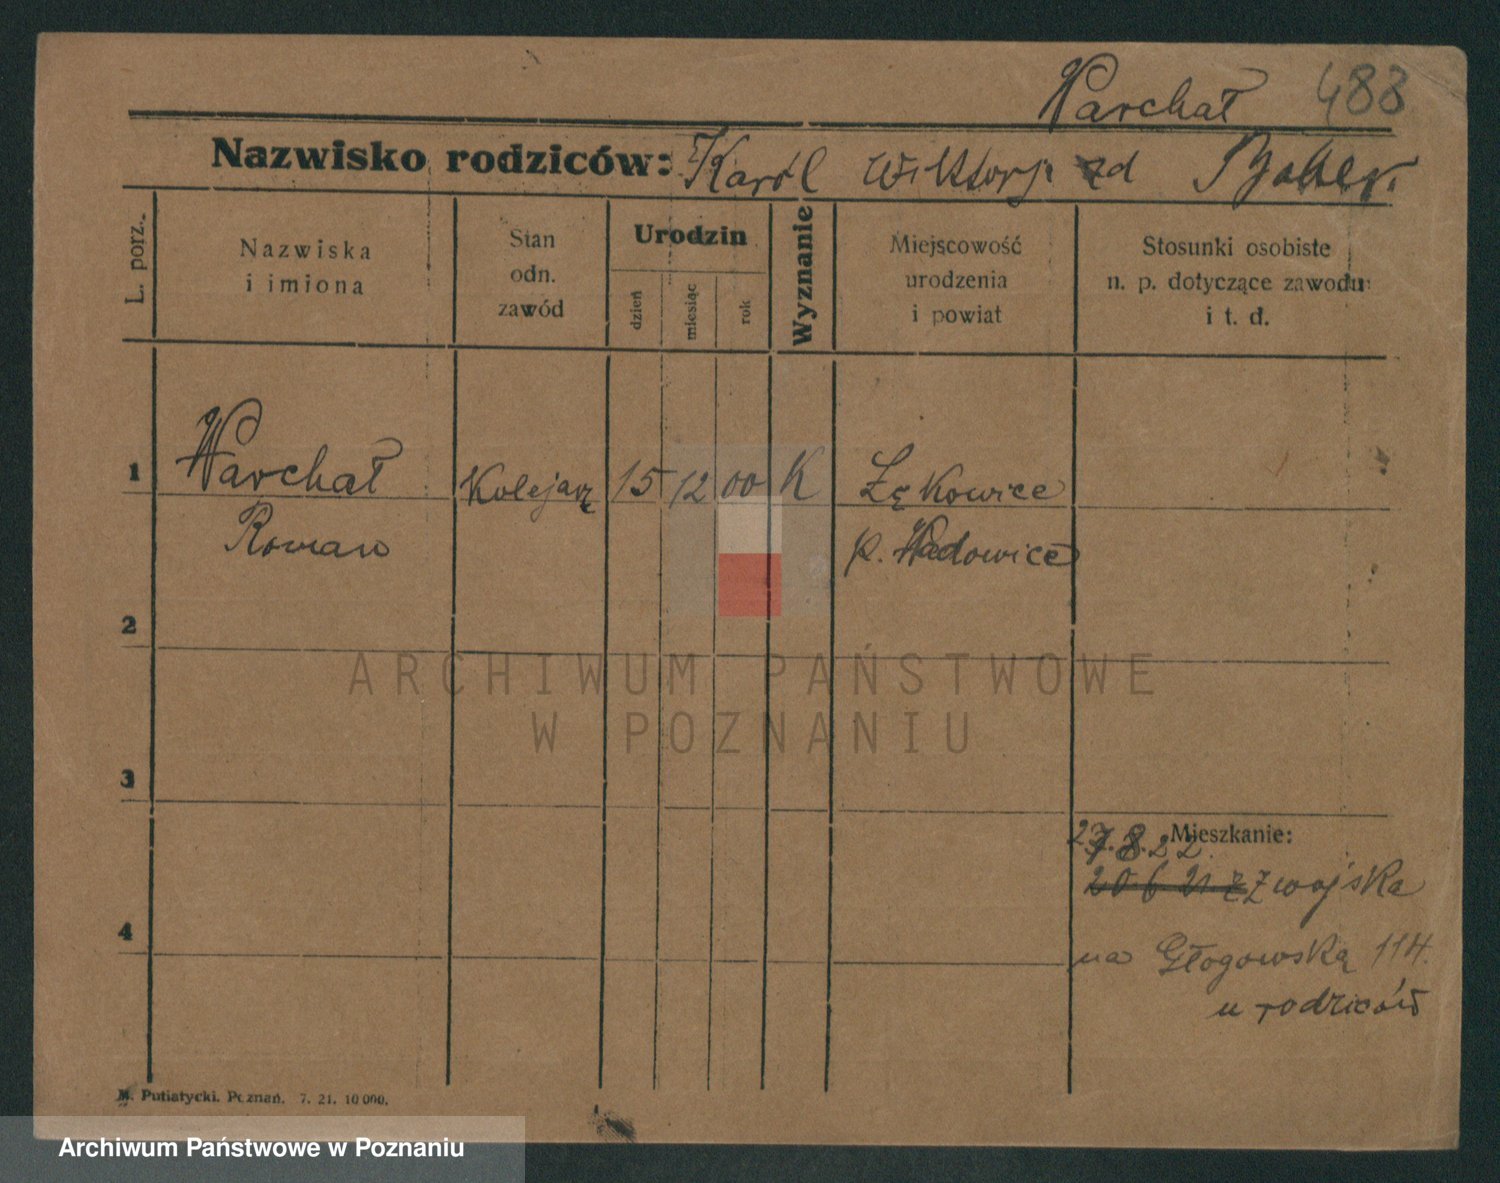 Warchał 488
Nazwisko rodziców: Karól Wiktorja zd
L. porz.
Nazwiska
i imiona
Stan
odn.
zawód
Urodzin
dzień
miesiąc
rok
Wyznanie
Miejscowość
urodzenia
i powiat
Stosunki osobiste
n. p. dotyczące zawodu
i t. d.
1 Warchał Kolejarz 15 12 00 K Łękowice
Roman p. Wadowice
2
ARCHIWUM PAŃSTWOWE
W POZNANIU
3
Mieszkanie:
27.8.22.
20 6 21 z Z wojska
4
na Głogowską 114.
u rodziców
M. Putiatycki. Poznań. 7. 21. 10 000.
Archiwum Państwowe w Poznaniu